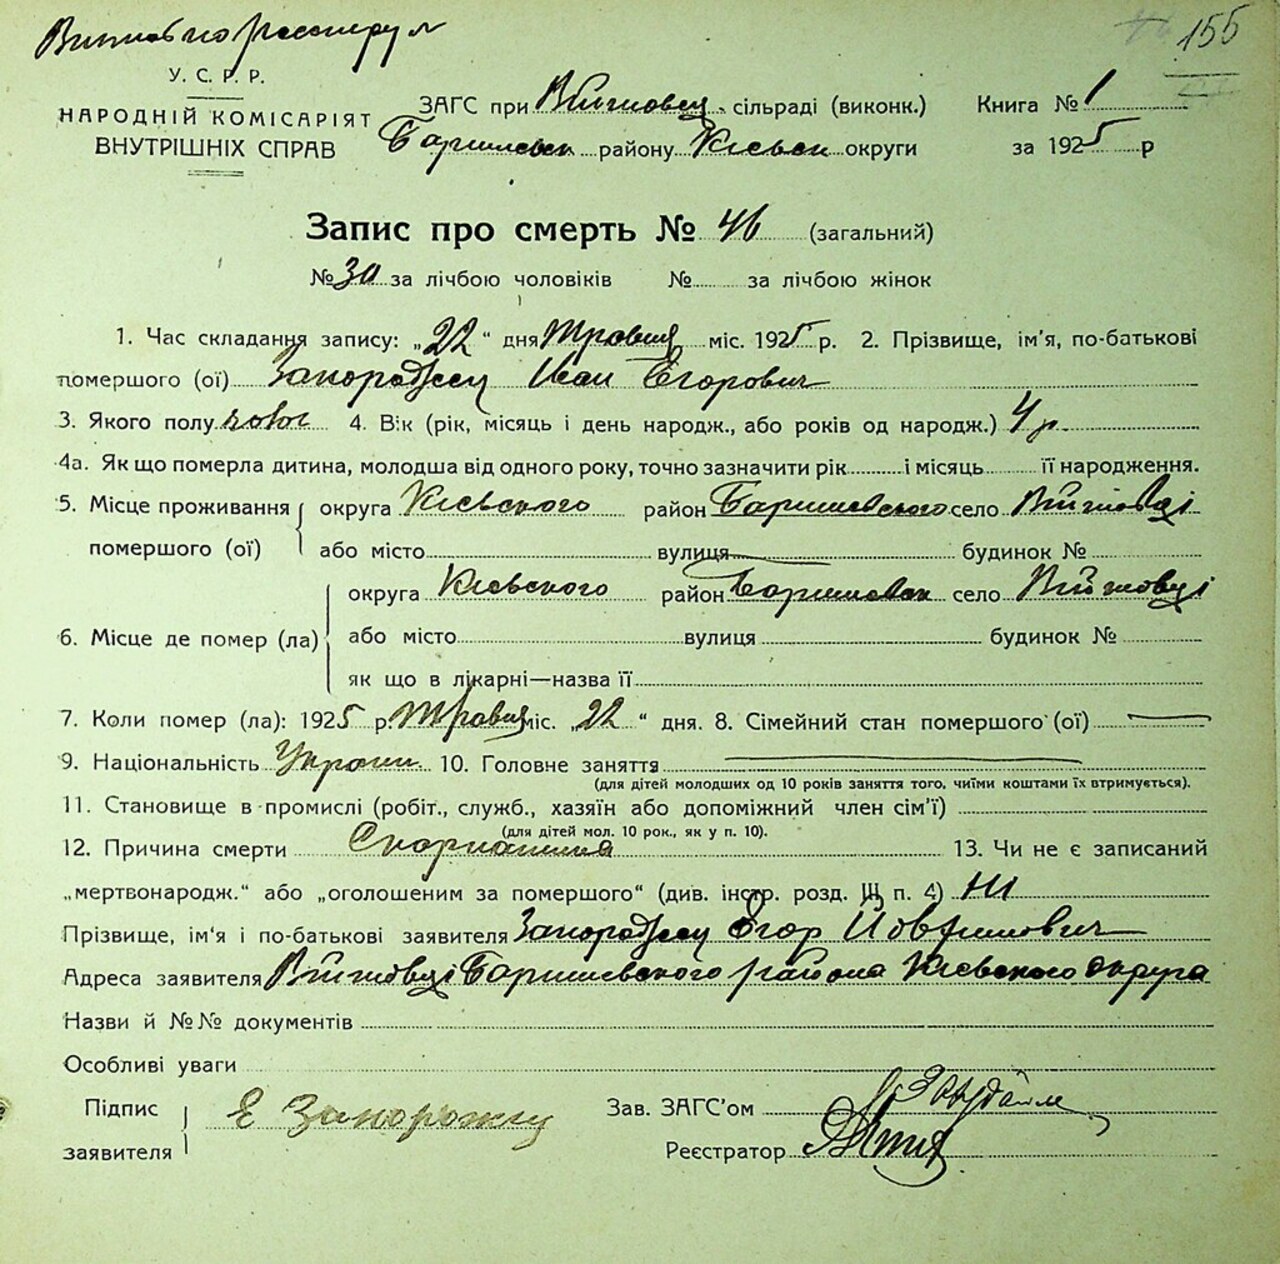 155
У. С. Р. Р.
НАРОДНІЙ КОМІСАРІЯТ
ВНУТРІШНІХ СПРАВ
ЗАГС при Війтовец. сільраді (виконк.)
Баришевск районy Київськ округи
Книга № 1
за 1925 р
Запис про смерть № 46 (загальний)
№ 30 за лічбою чоловіків № за лічбою жінок
1. Час складання запису: „22“ дня травня міс. 1925 р. 2. Прізвище, ім'я, по-батькові
помершого (ої) Запорожець Иван Єгорович
3. Якого полу чолов 4. Вік (рік, місяць і день народж., або років од народж.) 4 р.
4а. Як що померла дитина, молодша від одного року, точно зазначити рік і місяць її народження.
5. Місце проживання помершого (ої) округа Київского район Баришевского село Війтовці
або місто вулиця будинок №
6. Місце де помер (ла) округа Київского район Баришевск село Війтовці
або місто вулиця будинок №
як що в лікарні—назва її
7. Коли помер (ла): 1925 р. травня міс. „22“ дня. 8. Сімейний стан помершого (ої)
9. Національність Украин. 10. Головне заняття
(для дітей молодших од 10 років заняття того, чиїми коштами їх втримується).
11. Становище в промислі (робіт., служб., хазяїн або допоміжний член сім'ї)
(для дітей мол. 10 рок., як у п. 10).
12. Причина смерти Скорлатина 13. Чи не є записаний
„мертвонародж.“ або „оголошеним за помершого“ (див. інстр. розд. III п. 4) Ні
Прізвище, ім'я і по-батькові заявителя Запорожець Єгор
Адреса заявителя Війтовці Баришевского района Київского округа
Назви й №№ документів
Особливі уваги
Підпис заявителя Е Запорожец
Зав. ЗАГС'ом
Реєстратор